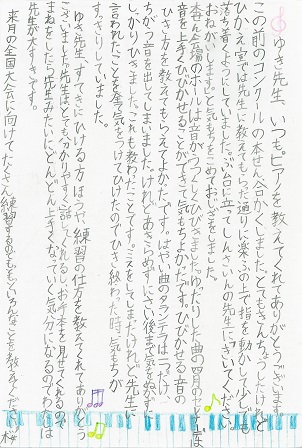 ゆき先生、いつもピアノを教えてくれてありがとうございます。
この前のコンクールの本せん、合かくしました。とてもきんちょうしたけれど
ひかえ室では先生に教えてもらった通りに楽ふの上で指を動かして少しでも
落ち着くようにしていました。ぶ台に立って、しんさいんの先生にきいてください
おねがいします。と気もちをこめておじぎをしました。
本せん会場のホールは音がつつしてひびきました。ゆったりした曲の四月のセレナーデは
音を上手くひびかせることができて気もちよかったです。ひびかせる音の
ひき方を教えてもらえてよかったです。はやい曲のタランテラは一つだけ
ちがう音を出してしまいました。けれどあきらめずにさい後まで気をぬかずに
しっかりひきました。これも教わったことです。ミスをしてしまったけれど先生に
言われたことを全て気をつけてひけたのでひき終わった時、気もちが
すっきりしていました。
ゆき先生、すてきにひける方ほうや、練習の仕方を教えてくれてありがとう
ございました。先生は、とても分かりやすく話してくれるし、お手本を見せてくれるので
まねをしたら先生みたいに、どんどん上手くなっていく気分になるのでわたしは
先生が大すきです。
来月の全国大会に向けてたくさん練習するのでもっといろんなことを教えてください。